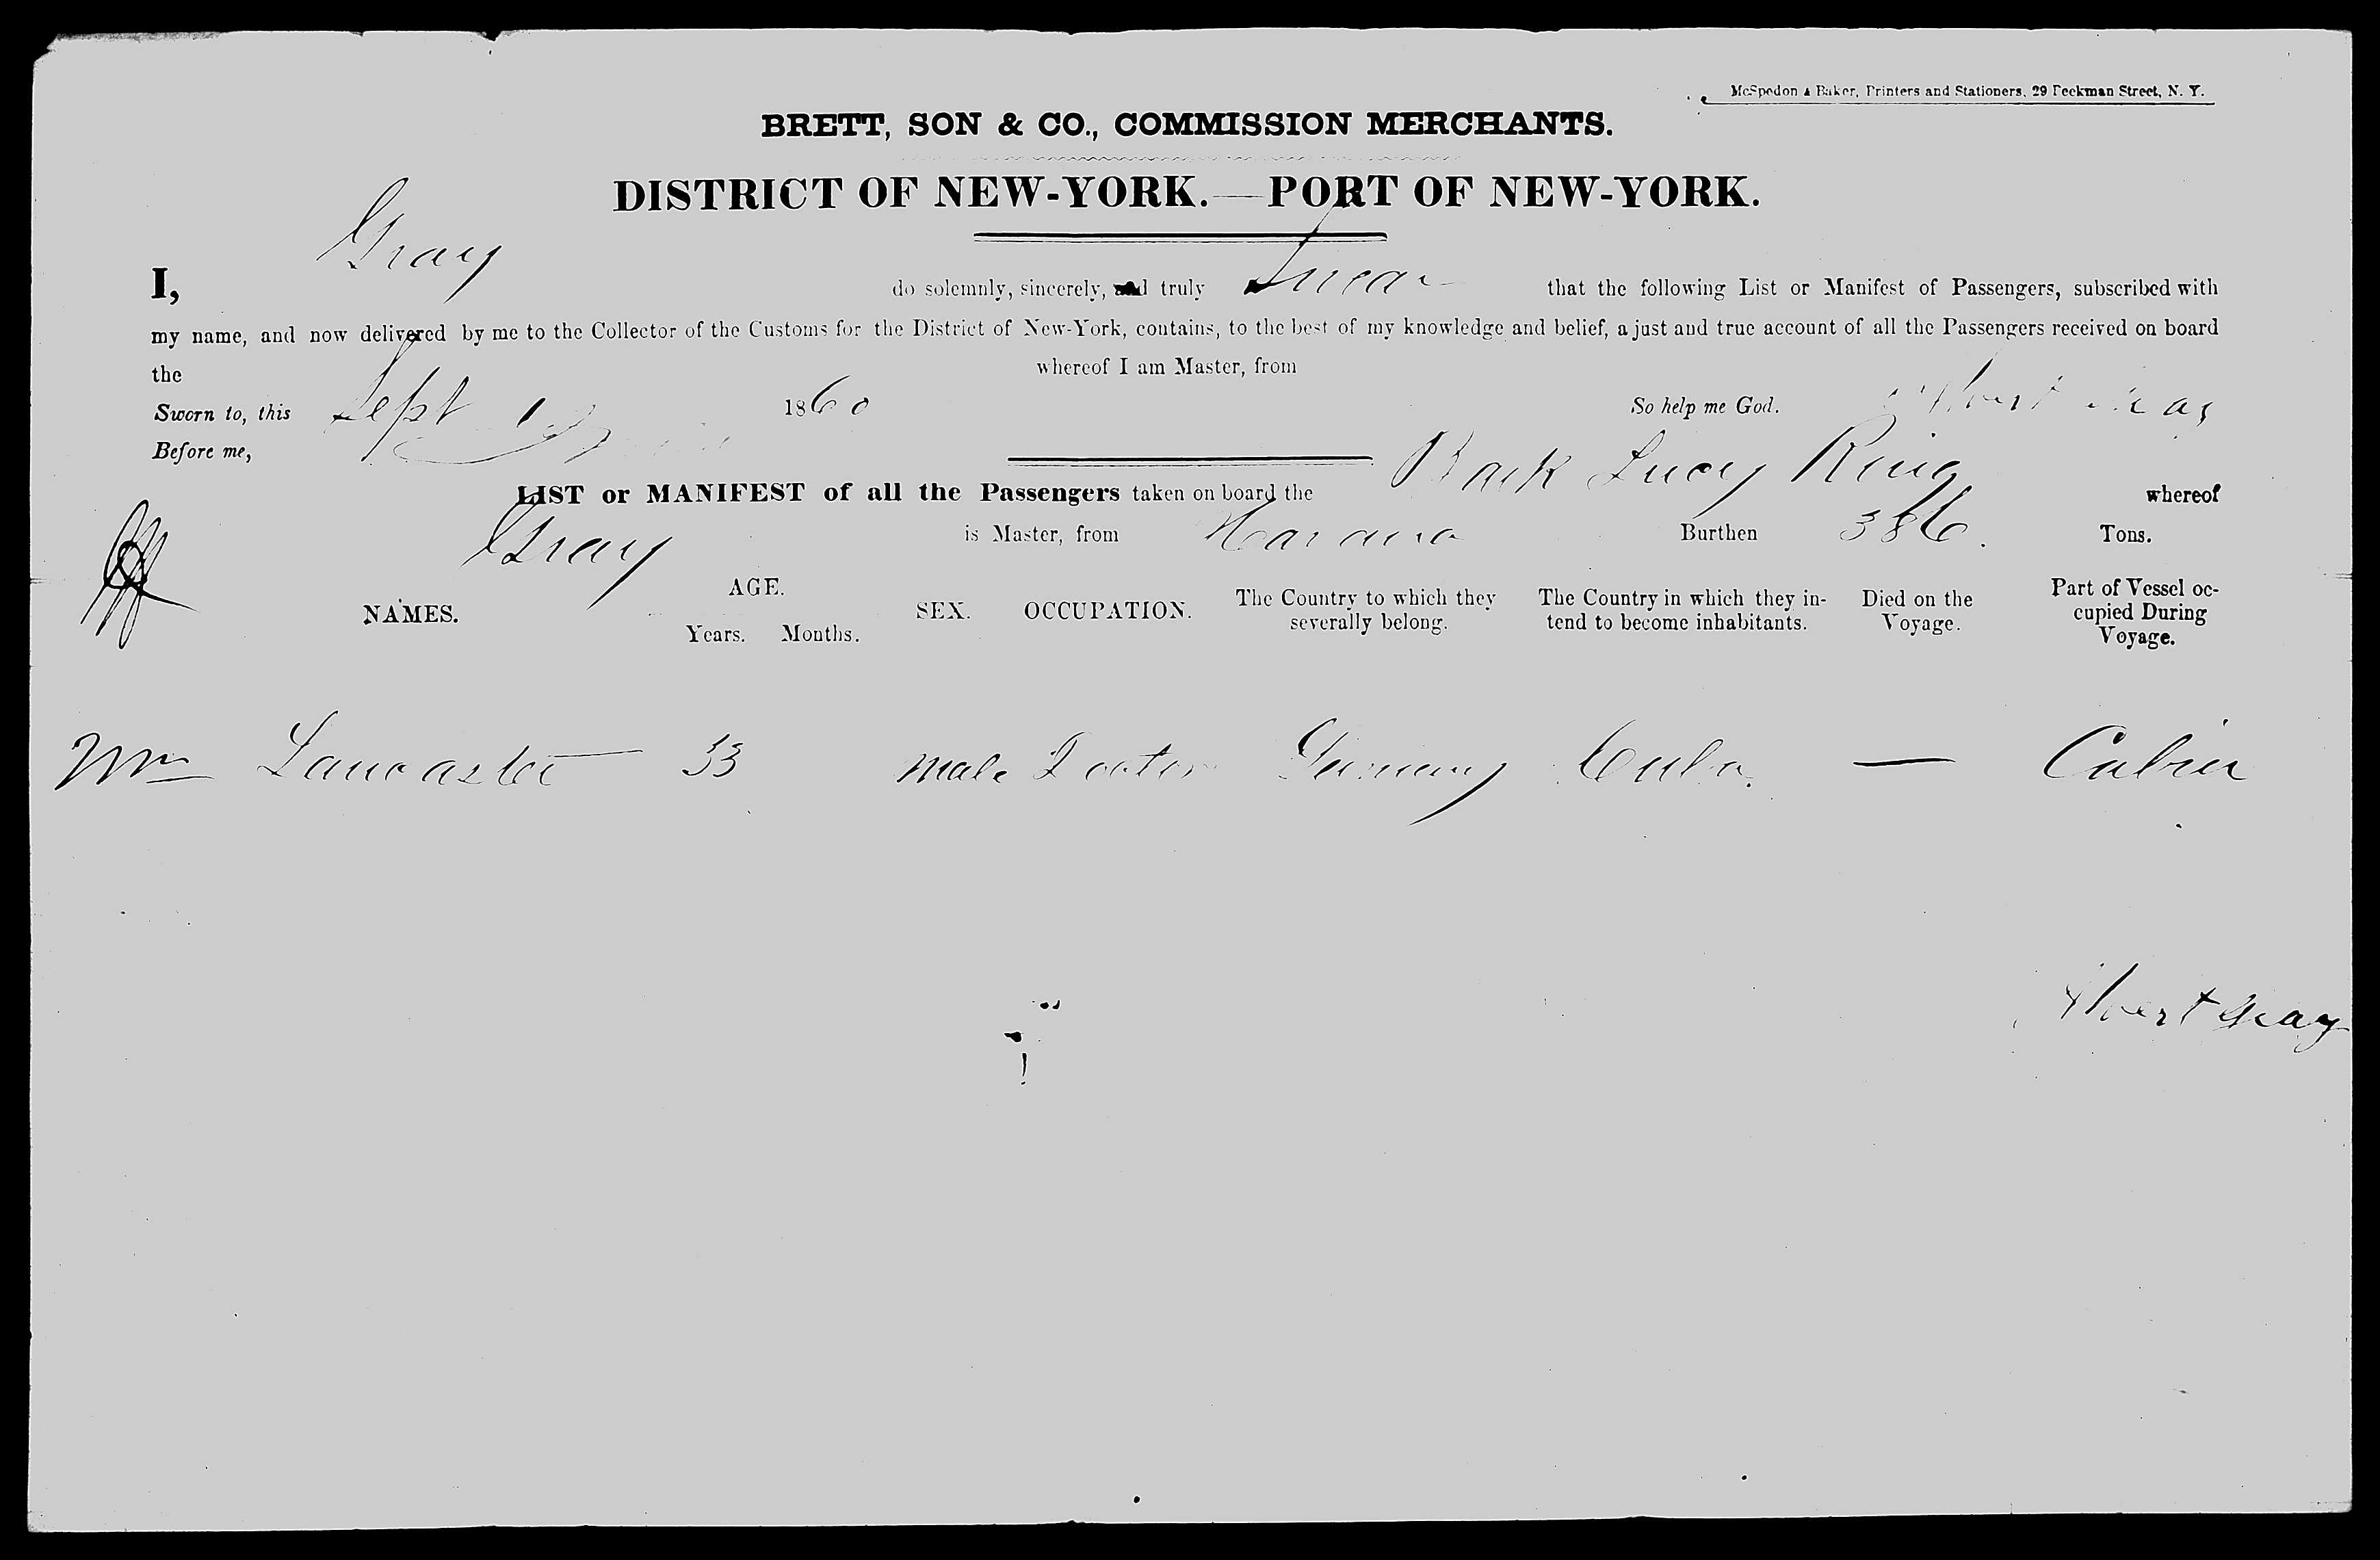 McSpedon & Baker, Printers and Stationers, 29 Beekman Street, N. Y.
BRETT, SON & CO., COMMISSION MERCHANTS.
DISTRICT OF NEW-YORK.—PORT OF NEW-YORK.
I, Gray do solemnly, sincerely, and truly Swear that the following List or Manifest of Passengers, subscribed with
my name, and now delivered by me to the Collector of the Customs for the District of New-York, contains, to the best of my knowledge and belief, a just and true account of all the Passengers received on board
the whereof I am Master, from
Sworn to, this Sept 1860 So help me God. Albert Gray
Before me,
LIST or MANIFEST of all the Passengers taken on board the Bark Lucy Ring whereof
Gray is Master, from Havana Burthen 386. Tons.
NAMES. AGE. Years. Months. SEX. OCCUPATION. The Country to which they severally belong. The Country in which they in-tend to become inhabitants. Died on the Voyage. Part of Vessel oc-cupied During Voyage.
Wm Lancaster 33 male Doctor Germany Cuba. — Cabin
Albert Gray